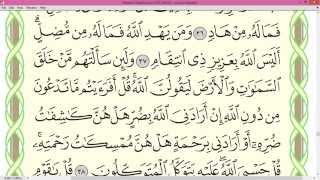 فَمَا لَهُۥ مِنْ هَادٍ ٣٦ وَمَن يَهْدِ ٱللَّهُ فَمَا لَهُۥ مِن مُّضِلٍّ ۗ
أَلَيْسَ ٱللَّهُ بِعَزِيزٍ ذِى ٱنتِقَامٍ ٣٧ وَلَئِن سَأَلْتَهُم مَّنْ خَلَقَ
ٱلسَّمَٰوَٰتِ وَٱلْأَرْضَ لَيَقُولُنَّ ٱللَّهُ ۚ قُلْ أَفَرَءَيْتُم مَّا تَدْعُونَ
مِن دُونِ ٱللَّهِ إِنْ أَرَادَنِىَ ٱللَّهُ بِضُرٍّ هَلْ هُنَّ كَٰشِفَٰتُ
ضُرِّهِۦٓ أَوْ أَرَادَنِى بِرَحْمَةٍ هَلْ هُنَّ مُمْسِكَٰتُ رَحْمَتِهِۦ ۚ
قُلْ حَسْبِىَ ٱللَّهُ ۖ عَلَيْهِ يَتَوَكَّلُ ٱلْمُتَوَكِّلُونَ ٣٨ قُلْ يَٰقَوْمِ